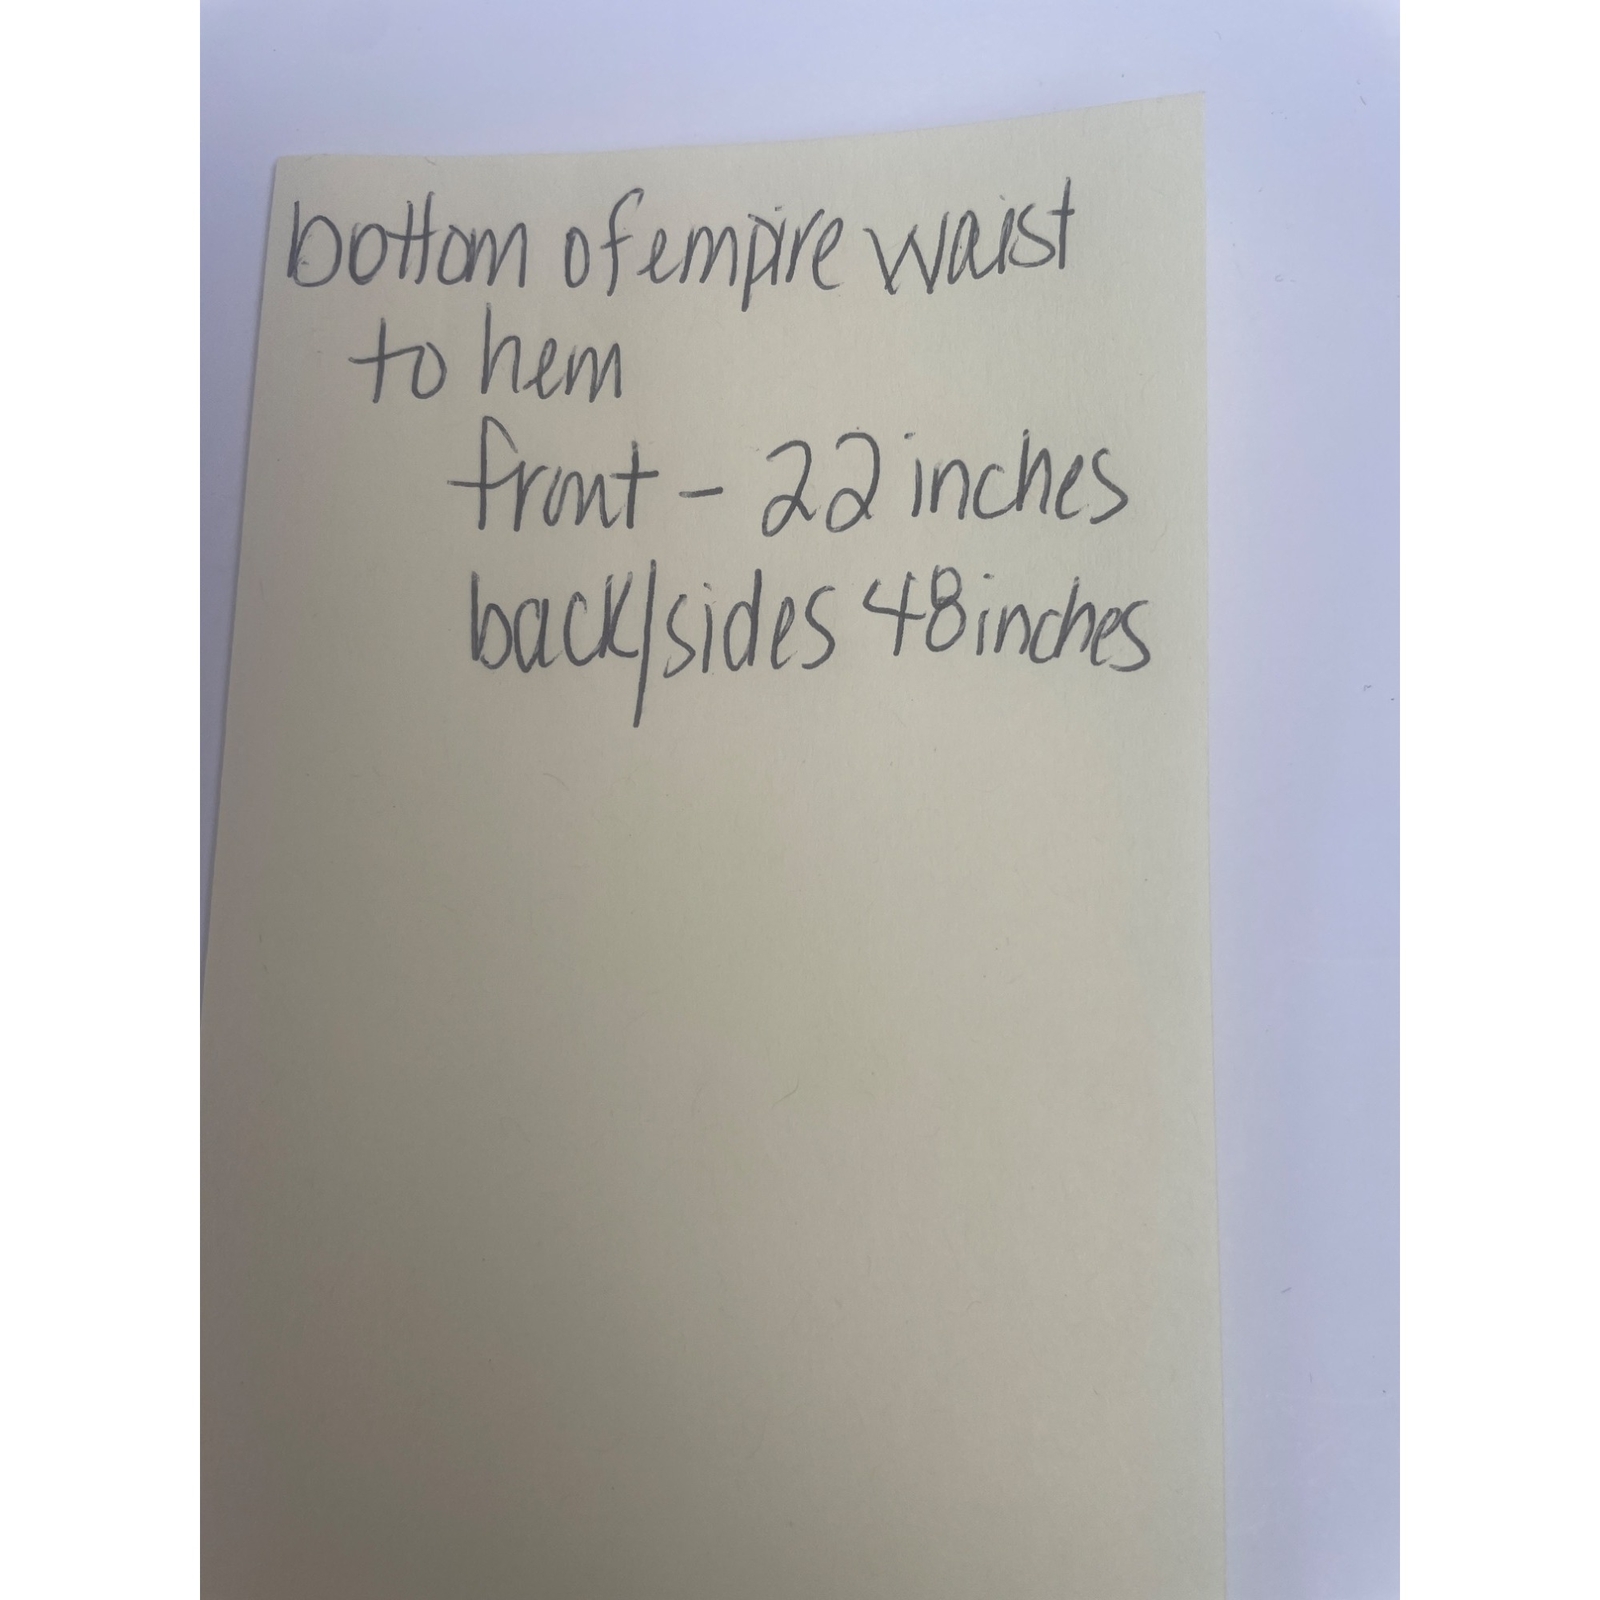 bottom of empire waist
to hem
front - 22 inches
back/sides 48 inches